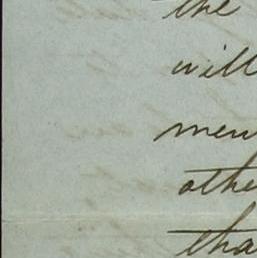 the
will
mem
othe
tha